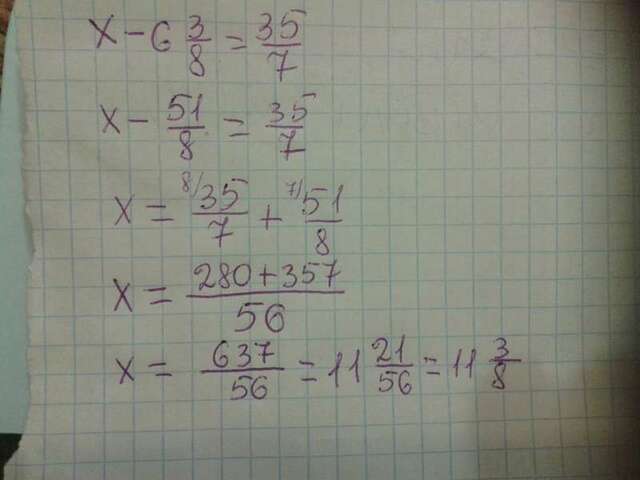 x - 6 3/8 = 35/7
x - 51/8 = 35/7
x = 8/ 35/7 + 7/ 51/8
x = 280+357/56
x = 637/56 = 11 21/56 = 11 3/8